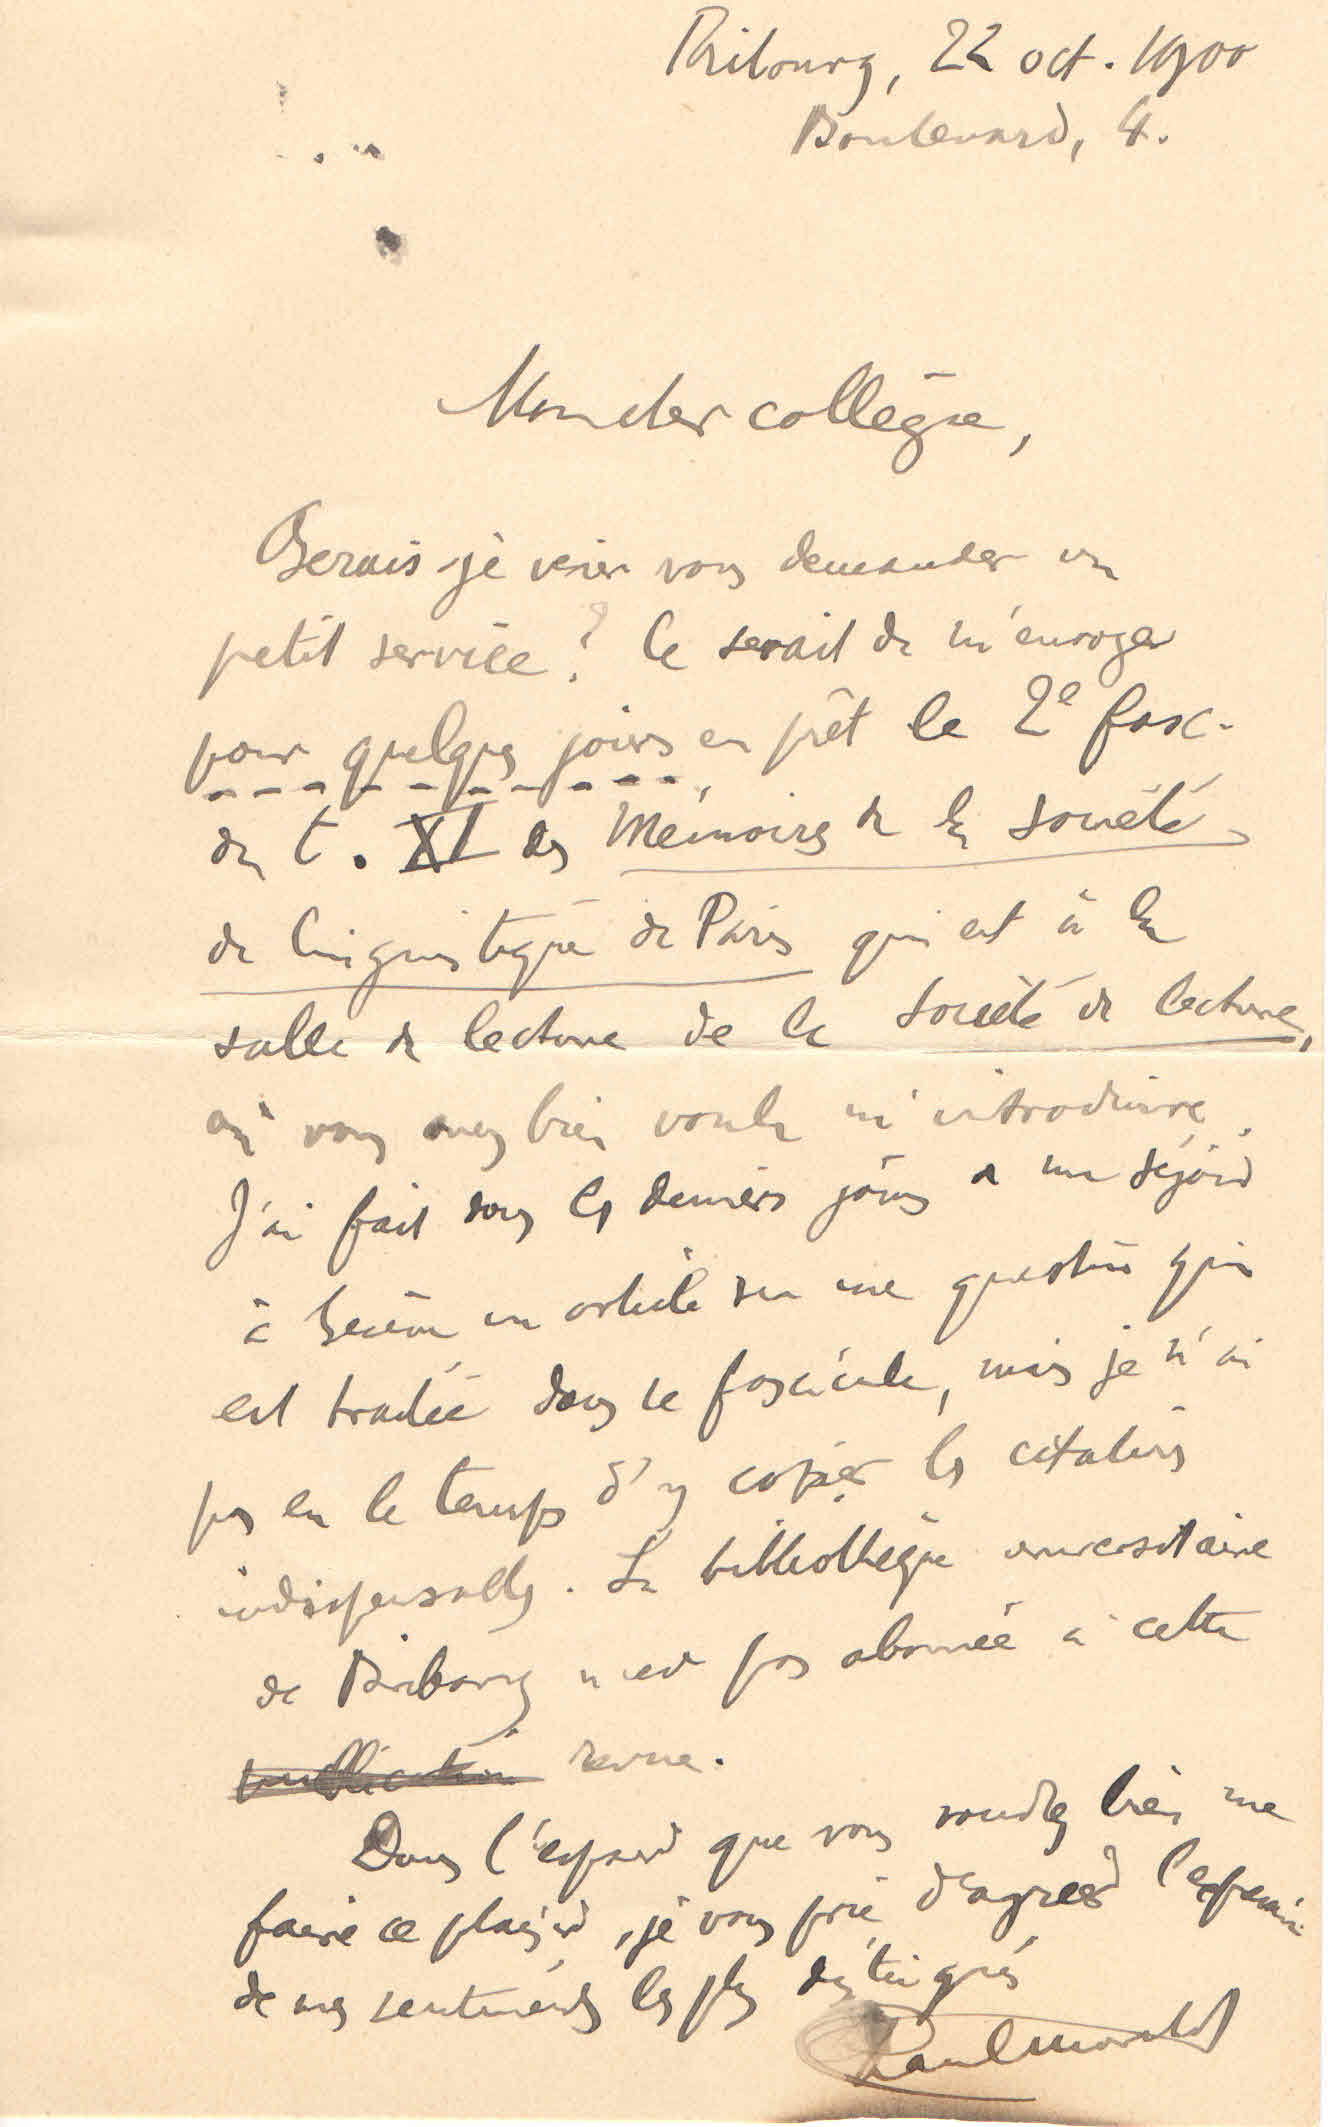 Fribourg, 22 oct. 1900
Boulevard, 4.
Mon cher collègue,
Oserais-je venir vous demander un
petit service ? Ce serait de m'envoyer
pour quelques jours en prêt le 2e fasc.
du t. XI des Mémoires de la société
de linguistique de Paris qui est à la
salle de lecture de la Société de lecture,
où vous avez bien voulu m'introduire.
J'ai fait dans les derniers jours de mon séjour
à Genève un article sur une question qui
est traitée dans ce fascicule, mais je n'ai
pas eu le temps d'y copier les citations
indispensables. La bibliothèque universitaire
de Fribourg n'est pas abonnée à cette
publication revue.
Dans l'espoir que vous voudrez bien me
faire ce plaisir, je vous prie d'agréer l'expression
de mes sentiments les plus distingués
Paul